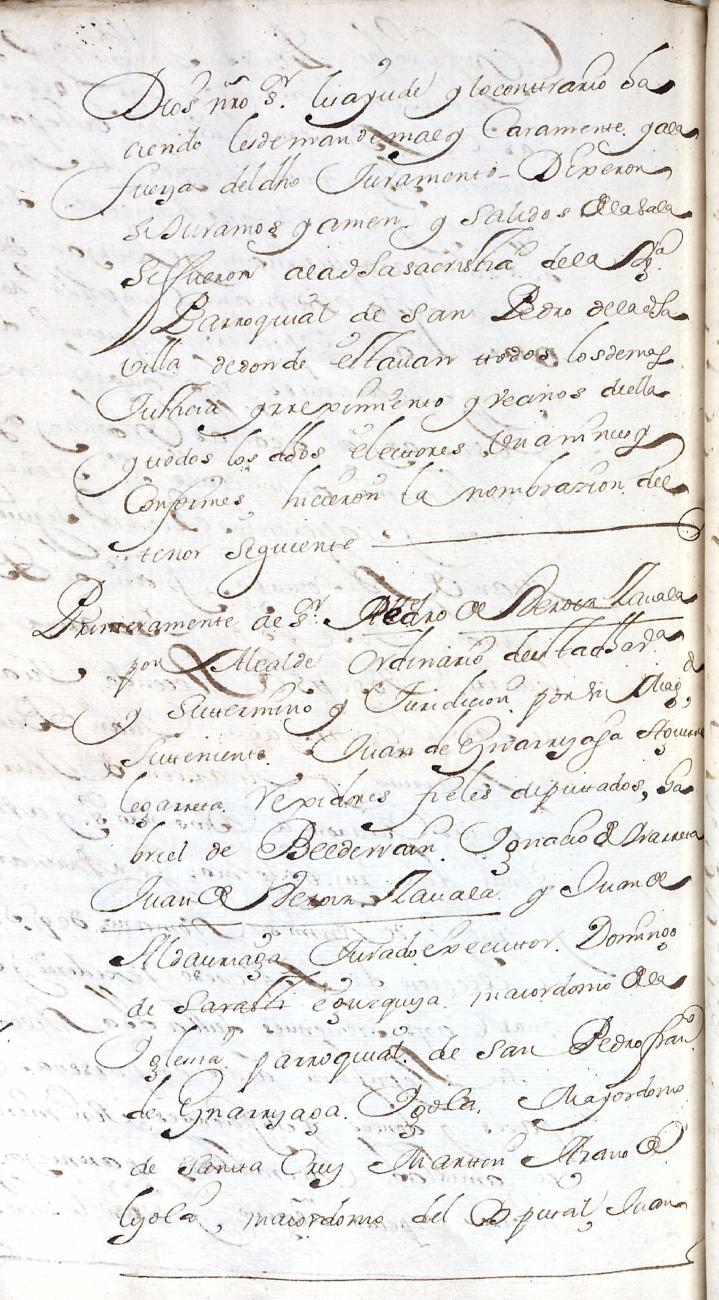 Dios nro sr. lus ayude y lo conttrario ha
ciendo les demande mal y Caramente y a la
fuerza del dho Juramento Dixeron
Si Juramos y amen y salidos de la sala
se fueron a la dha sacristia de la Yga
Parroquial de san Pedro de la dha
villa de donde estavan ttodos los demas
Justicia y rreximiento y vecinos de ella
y ttodos los dhos electores Unanimes y
Conformes hicieron la nombrazion del
tenor siguiente
Primeramente a sr. Pedro de Beroin Zavala
por Alcalde Ordinario de esta dha va
y su ttermino y Juridicion por su Magd,
su tteniente Juan de Ynarryaga
legarreta. Rexidores fieles diputtados, Ga
briel de Beedercain. Ygnacio de Yrarreta
Juan de Beroin Zavala y Juan de
Aldauriaga Jurado executtor. Domingo
de Sarasti egurquiza. maiordomo de la
Yglesia parroquial de san Pedro fran
de Ynarryaga. Ygola. Mayordomo
de santa Cruz Marttin Arano de
lyola, maiordomo del Ospital, Juan